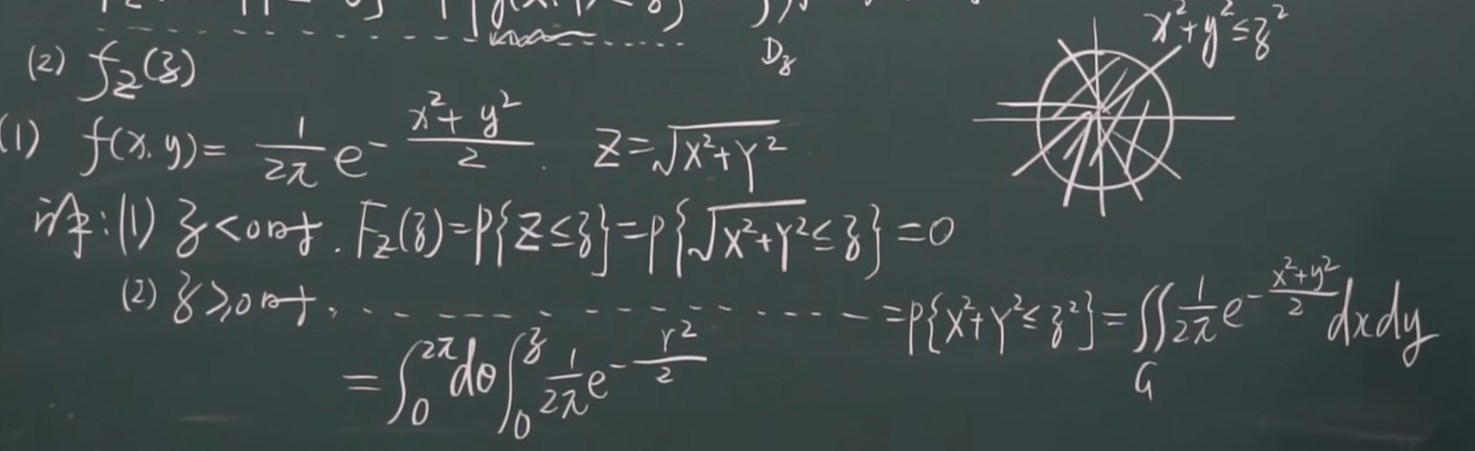 D_z
x²+y²≤z²
(2) f_Z(z)
(1) f(x,y)= 1/2π e^{-(x²+y²)/2}. Z=√(X²+Y²)
解:(1) z<0时. F_Z(z)=P{Z≤z}=P{√(X²+Y²)≤z}=0
(2) z≥0时, ----------=P{X²+Y²≤z²}=∬_G 1/2π e^{-(x²+y²)/2} dxdy
=∫_0^{2π} dθ ∫_0^z 1/2π e^{-r²/2}